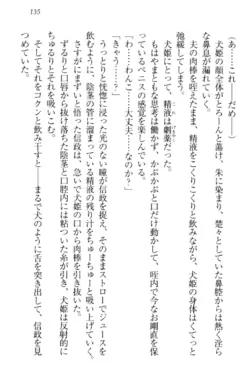 135
(あ……これ……だめ……)
犬姫の顔全体がとろーんと蕩け、朱に染まり、楚々とした鼻腔から熱い淫ら
な鼻息が漏れていく。
夫の肉棒をそのまま、精液をこくりこくりと飲みながら、犬姫の身体はくてっと
弛緩してしまう。
犬姫にとって、精液は劇薬だった。
もはやまともな思考は働かず、かぷかぷと口だけ動かして、咥内で今なお剛直を保
っているペニスの感覚を楽しんでいる。
「わ、わんこ……大丈夫……なのか」
「きゃう……？」
うっとりと恍惚に浸った光のない瞳が信政を捉え、そのままストローでジュースを
飲むように、陰茎の管に溜まっている精液の残り汁をちゅーちゅーと吸い上げていく。
さすがにまずいと、急いで犬姫の口から肉棒を引き抜く信政。
ずるりと口唇から抜け落ちた陰茎と口腔内には粘ついた糸が
ちゅるりと
それをコクンと飲み干すと――まるで犬のように舌を突き出して、信政を見
つめていた。